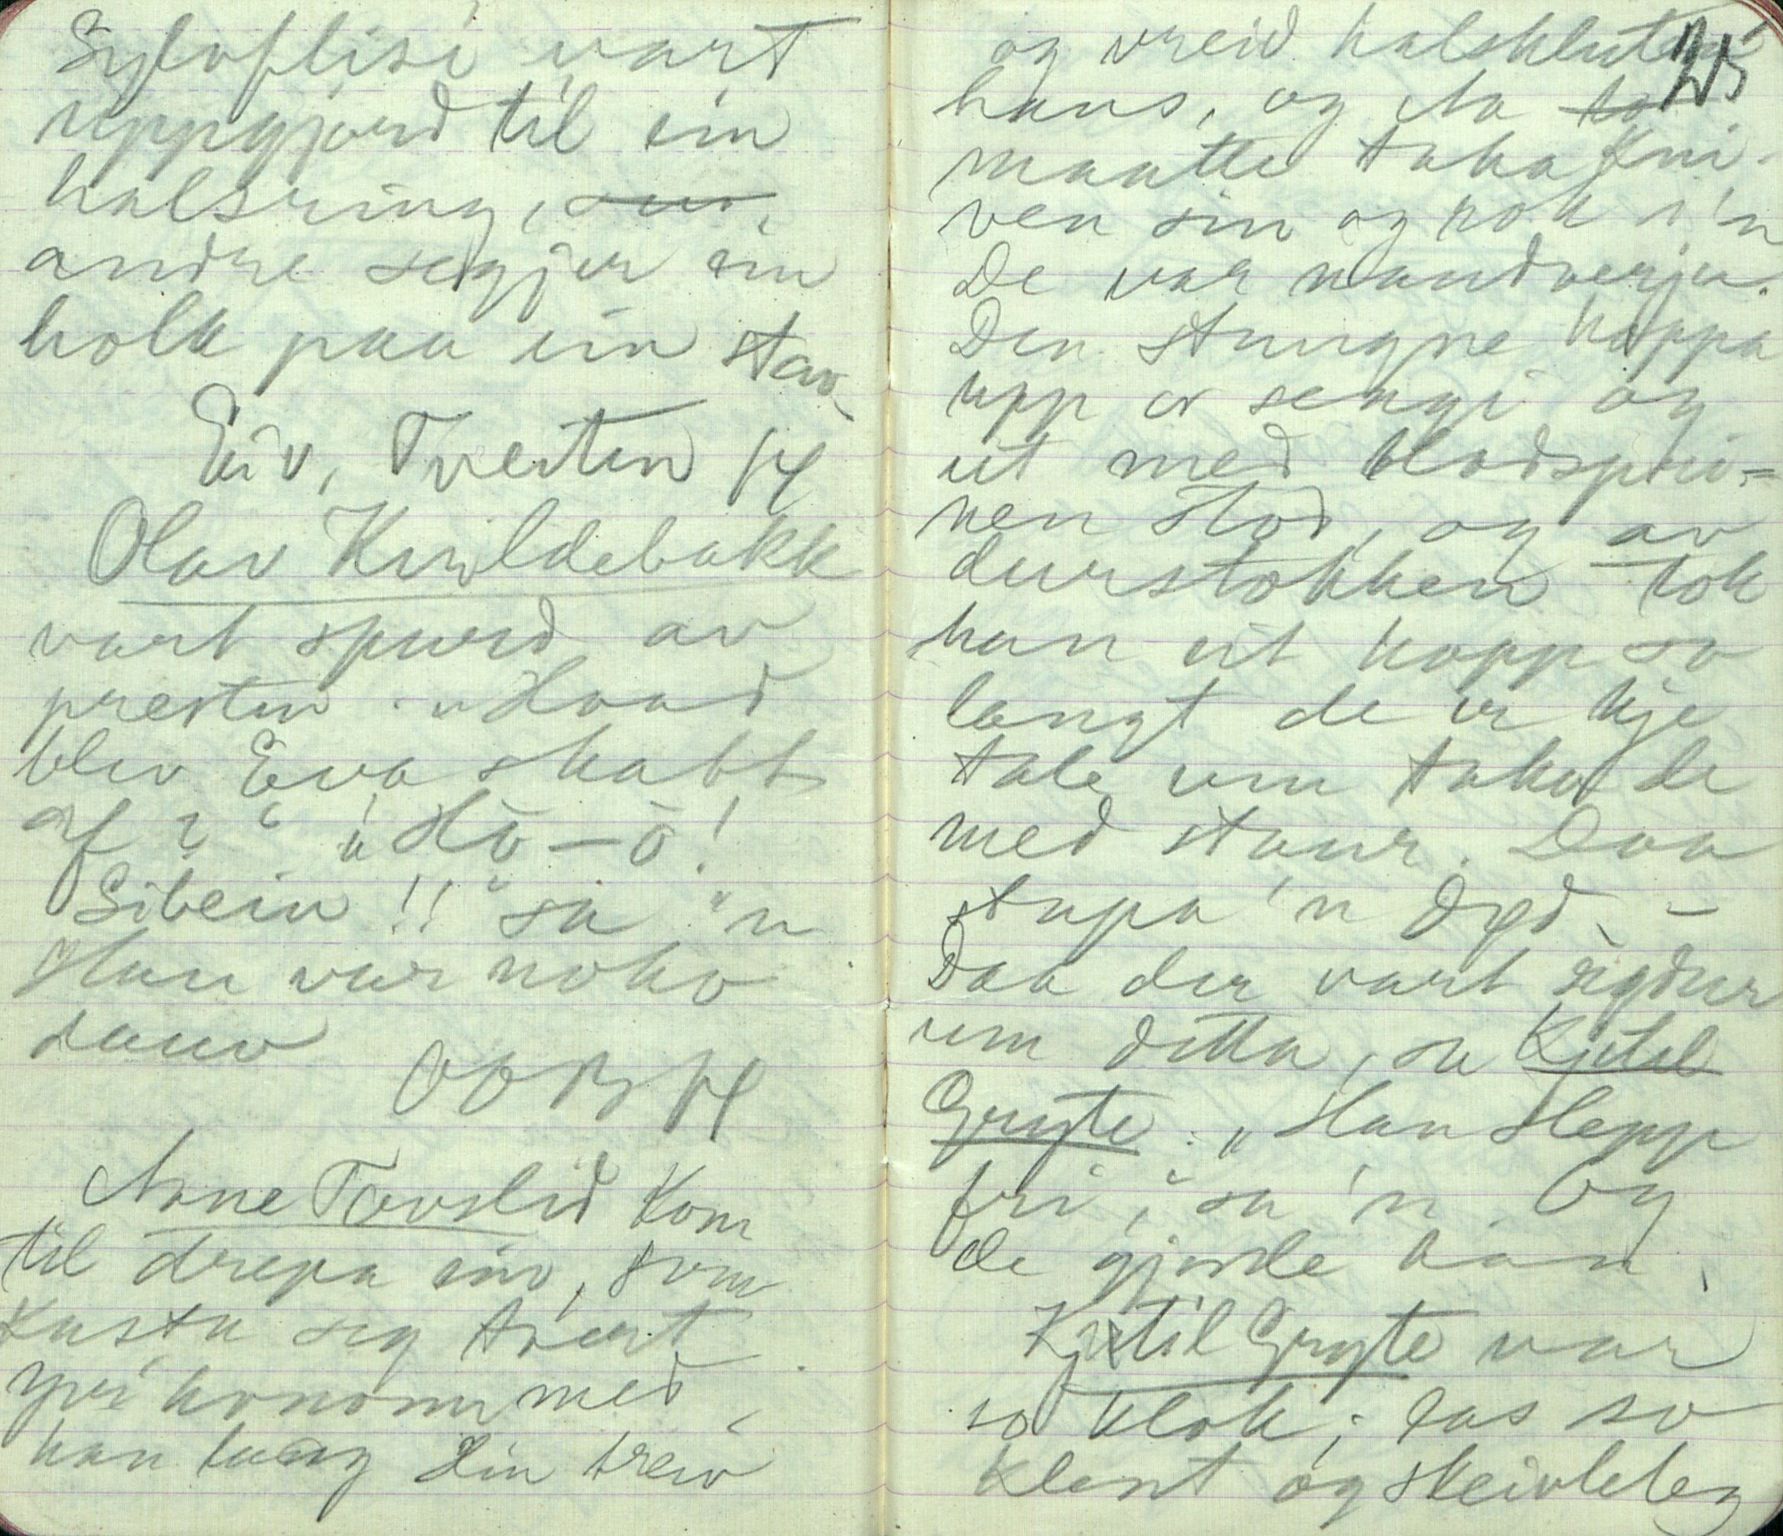 Sylvflisi vart
uppgjord til ein
halsring, som,
andre segjer ein
holk paa ein stav.
Eiv. Tveiten 14
Olav Kvildebakk
vart spurd av
presten: „Hvad
blev Eva skabt
af?“ „Hö–ö!
Sibein!!“ sa 'n
Han var noko
sauv
OOB 14
Arne Tovslid kom
til drepa ein, som
kasta seg tvert
yvi honom med
han laag. Hin treiv
25
og vreid halskluten
hans, og Aa to
maatte taka kni-
ven sin og rok i'n
De var naudverja.
Den stungne hoppa
upp or sengi og
ut med blodspru-
nen stod, og av
durstokken tok
han eit hopp so
langt de er kje
tale um taka de
med staur. Daa
stupa 'n død. –
Daa der vart rigdur
um detta, sa Kjetil
Gryte: „Han slepp
fri“, sa 'n. Og
de gjorde han.
Kjetil Gryte var
so klok; las so
klent og skeivleleg